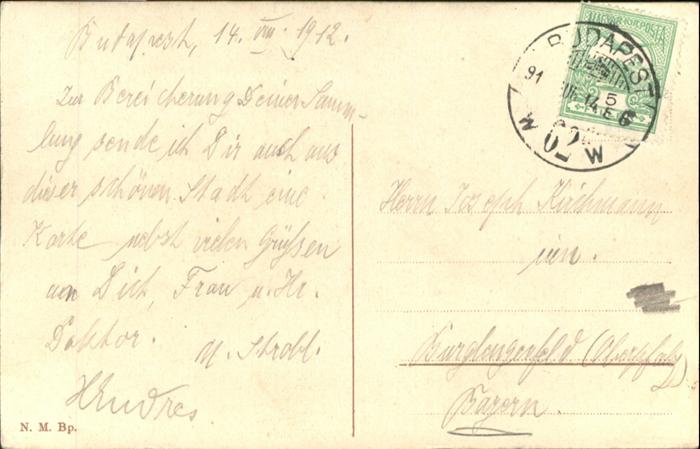 Budapest, 14. VIII. 1912.
Zur Bereicherung Deiner Samm-
lung sende ich Dir auch aus
dieser schönen Stadt eine
Karte nebst vielen Grüßen
an Dich, Frau u. Hr.
Doktor.
M. Strobl.
HEndres
N. M. Bp.
MAGYAR KIR. POSTA
5
BUDAPEST
62
Herrn Joseph Kirchmann
jun.
Burglengenfeld (Oberpfalz)
Bayern.